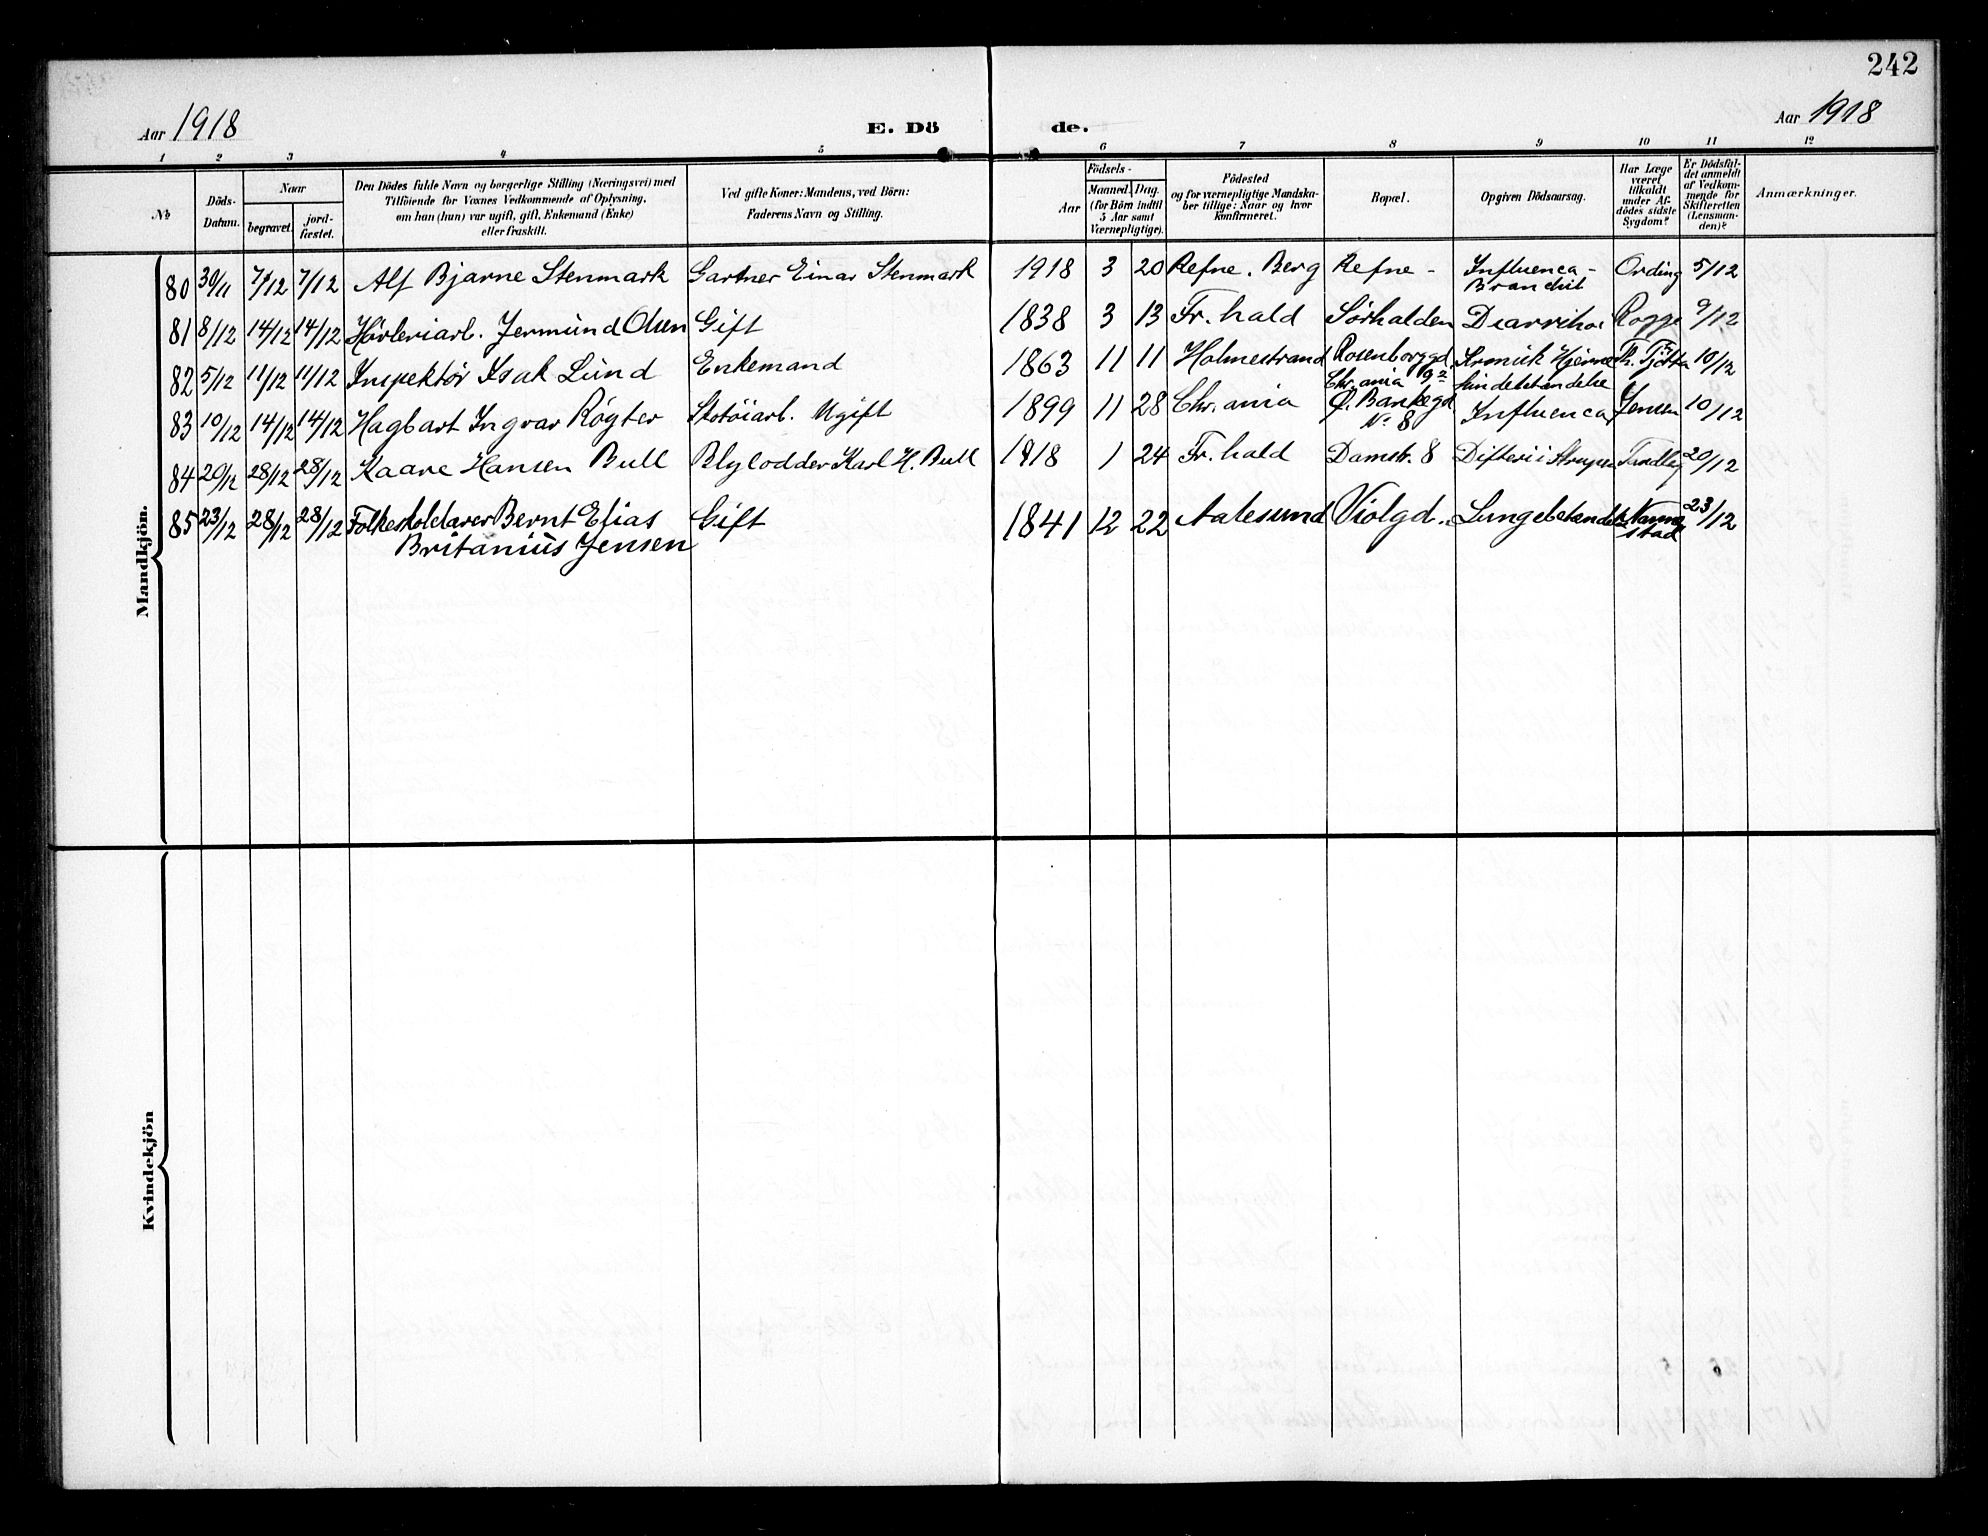 242
Aar 1918 E. Dö de. Aar 1918
1 2 3 4 5 6 7 8 9 10 11 12
№ Döds-Datum. Naar begravet. jord-fæstet. Den Dödes fulde Navn og borgerlige Stilling (Næringsvei) med Tilföiende for Voxnes Vedkommende af Oplysning, om han (hun) var ugift, gift, Enkemand (Enke) eller fraskilt. Ved gifte Koner: Mandens, ved Börn: Faderens Navn og Stilling. Födsels- Aar Maaned. Dag. (for Börn indtil 5 Aar samt Værnepligtige). Födested og for værnepligtige Mandska-ber tillige: Naar og hvor Konfirmeret. Bopæl. Opgiven Dödsaarsag. Har Læge været tilkaldt under Af-dödes sidste Sygdom? Er Dödsfal-det anmeldt af Vedkom-mende for Skifteretten (Lensman-den)? Anmærkninger.
Mandkjön.
80 30/11 7/12 7/12 Alf Bjarne Stenmark Gartner Einar Stenmark 1918 3 20 Refne. Berg Refne - Influenca - Bronchit Ording 5/12
81 8/12 14/12 14/12 Hövleriarb. Jermund Olsen Gift 1838 3 13 Fr. hald Sörhalden Rogge 9/12
82 5/12 11/12 11/12 Inspektör Isak Lund Enkemand 1863 11 11 Holmestrand Rosenborggd. Chr.ania Kronisk Hjerne 10/12
83 10/12 14/12 14/12 Hagbart Ingvar Rögter Skotöiarb. Ugift 1899 11 28 Chr.ania Ø. Bankegd № 8 Influenca Jensen 10/12
84 20/12 28/12 28/12 Kaare Hansen Bull Blylodder Karl H. Bull 1918 1 24 Fr. hald Damstr. 8 Difteri i Strupen 20/12
85 23/12 28/12 28/12 Folkeskolelærer Bernt Elias Britanius Jensen Gift 1841 12 22 Aalesund Violgd. Lungebetændelse 23/12
Kvindekjön